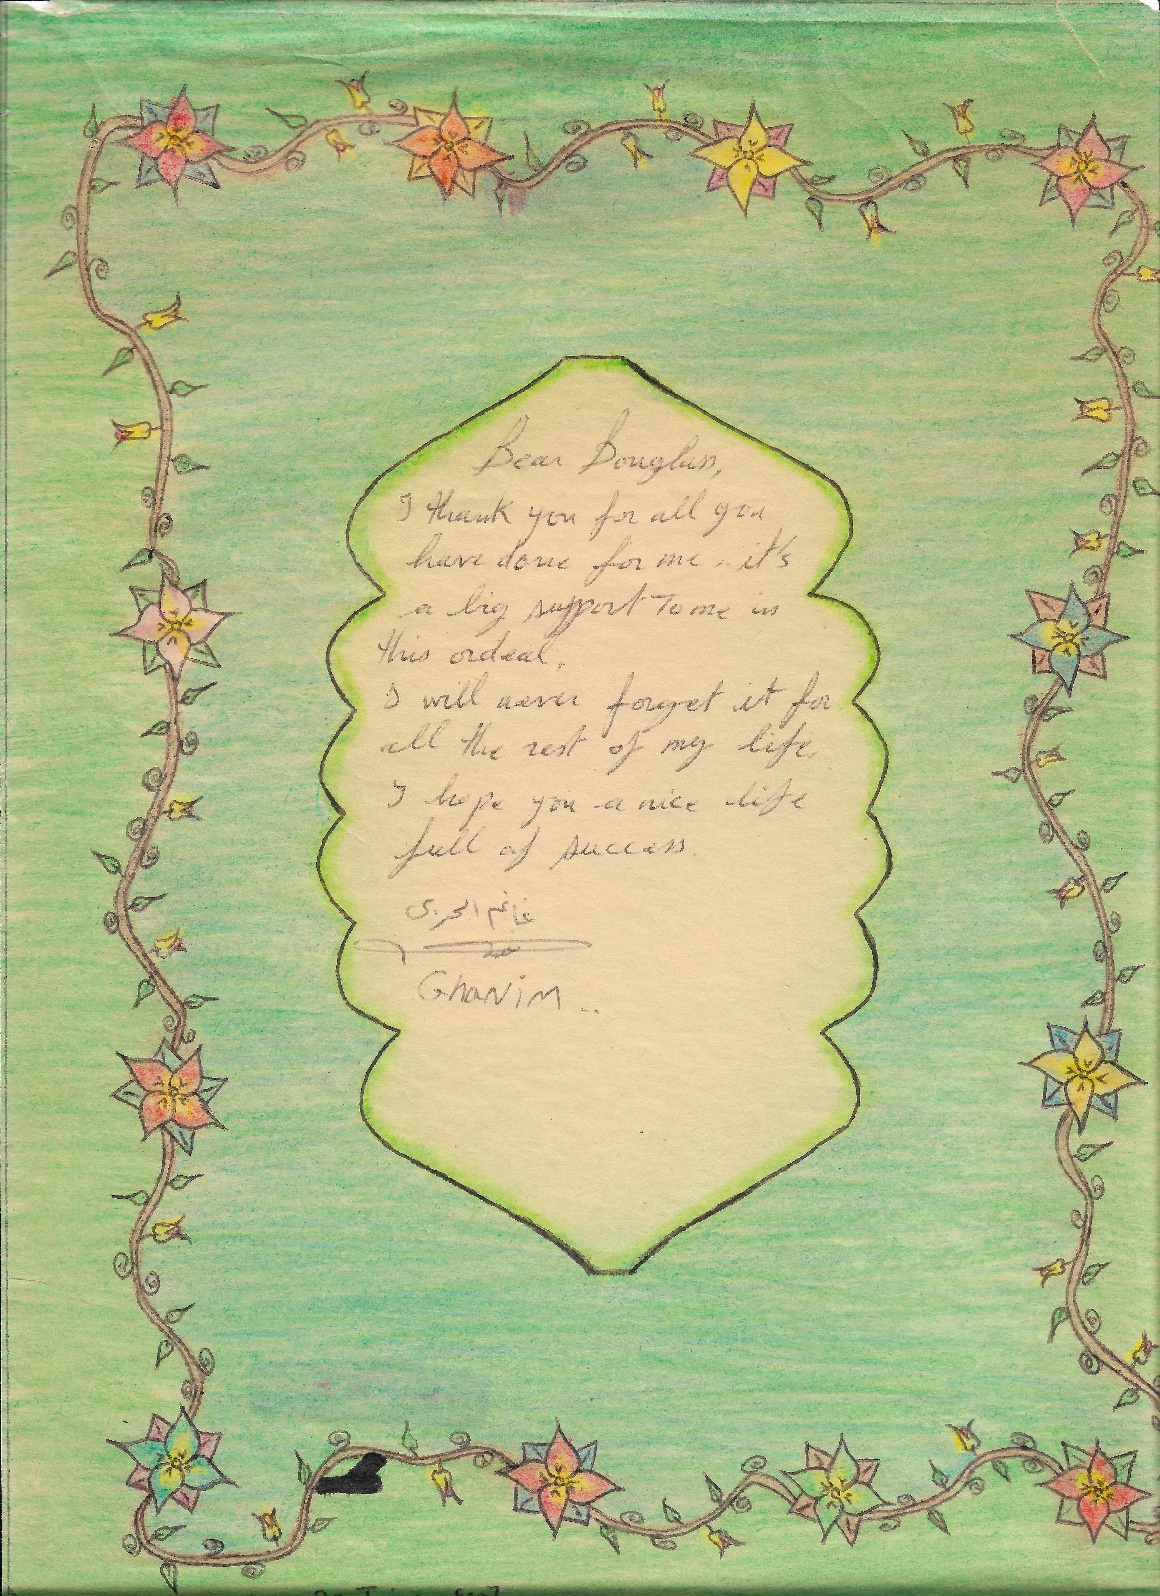 Dear Douglass,
I thank you for all you
have done for me.. it's
a big support to me in
this ordeal.
I will never forget it for
all the rest of my life.
I hope you a nice life
full of success.
غانم الحربي
Ghanim..